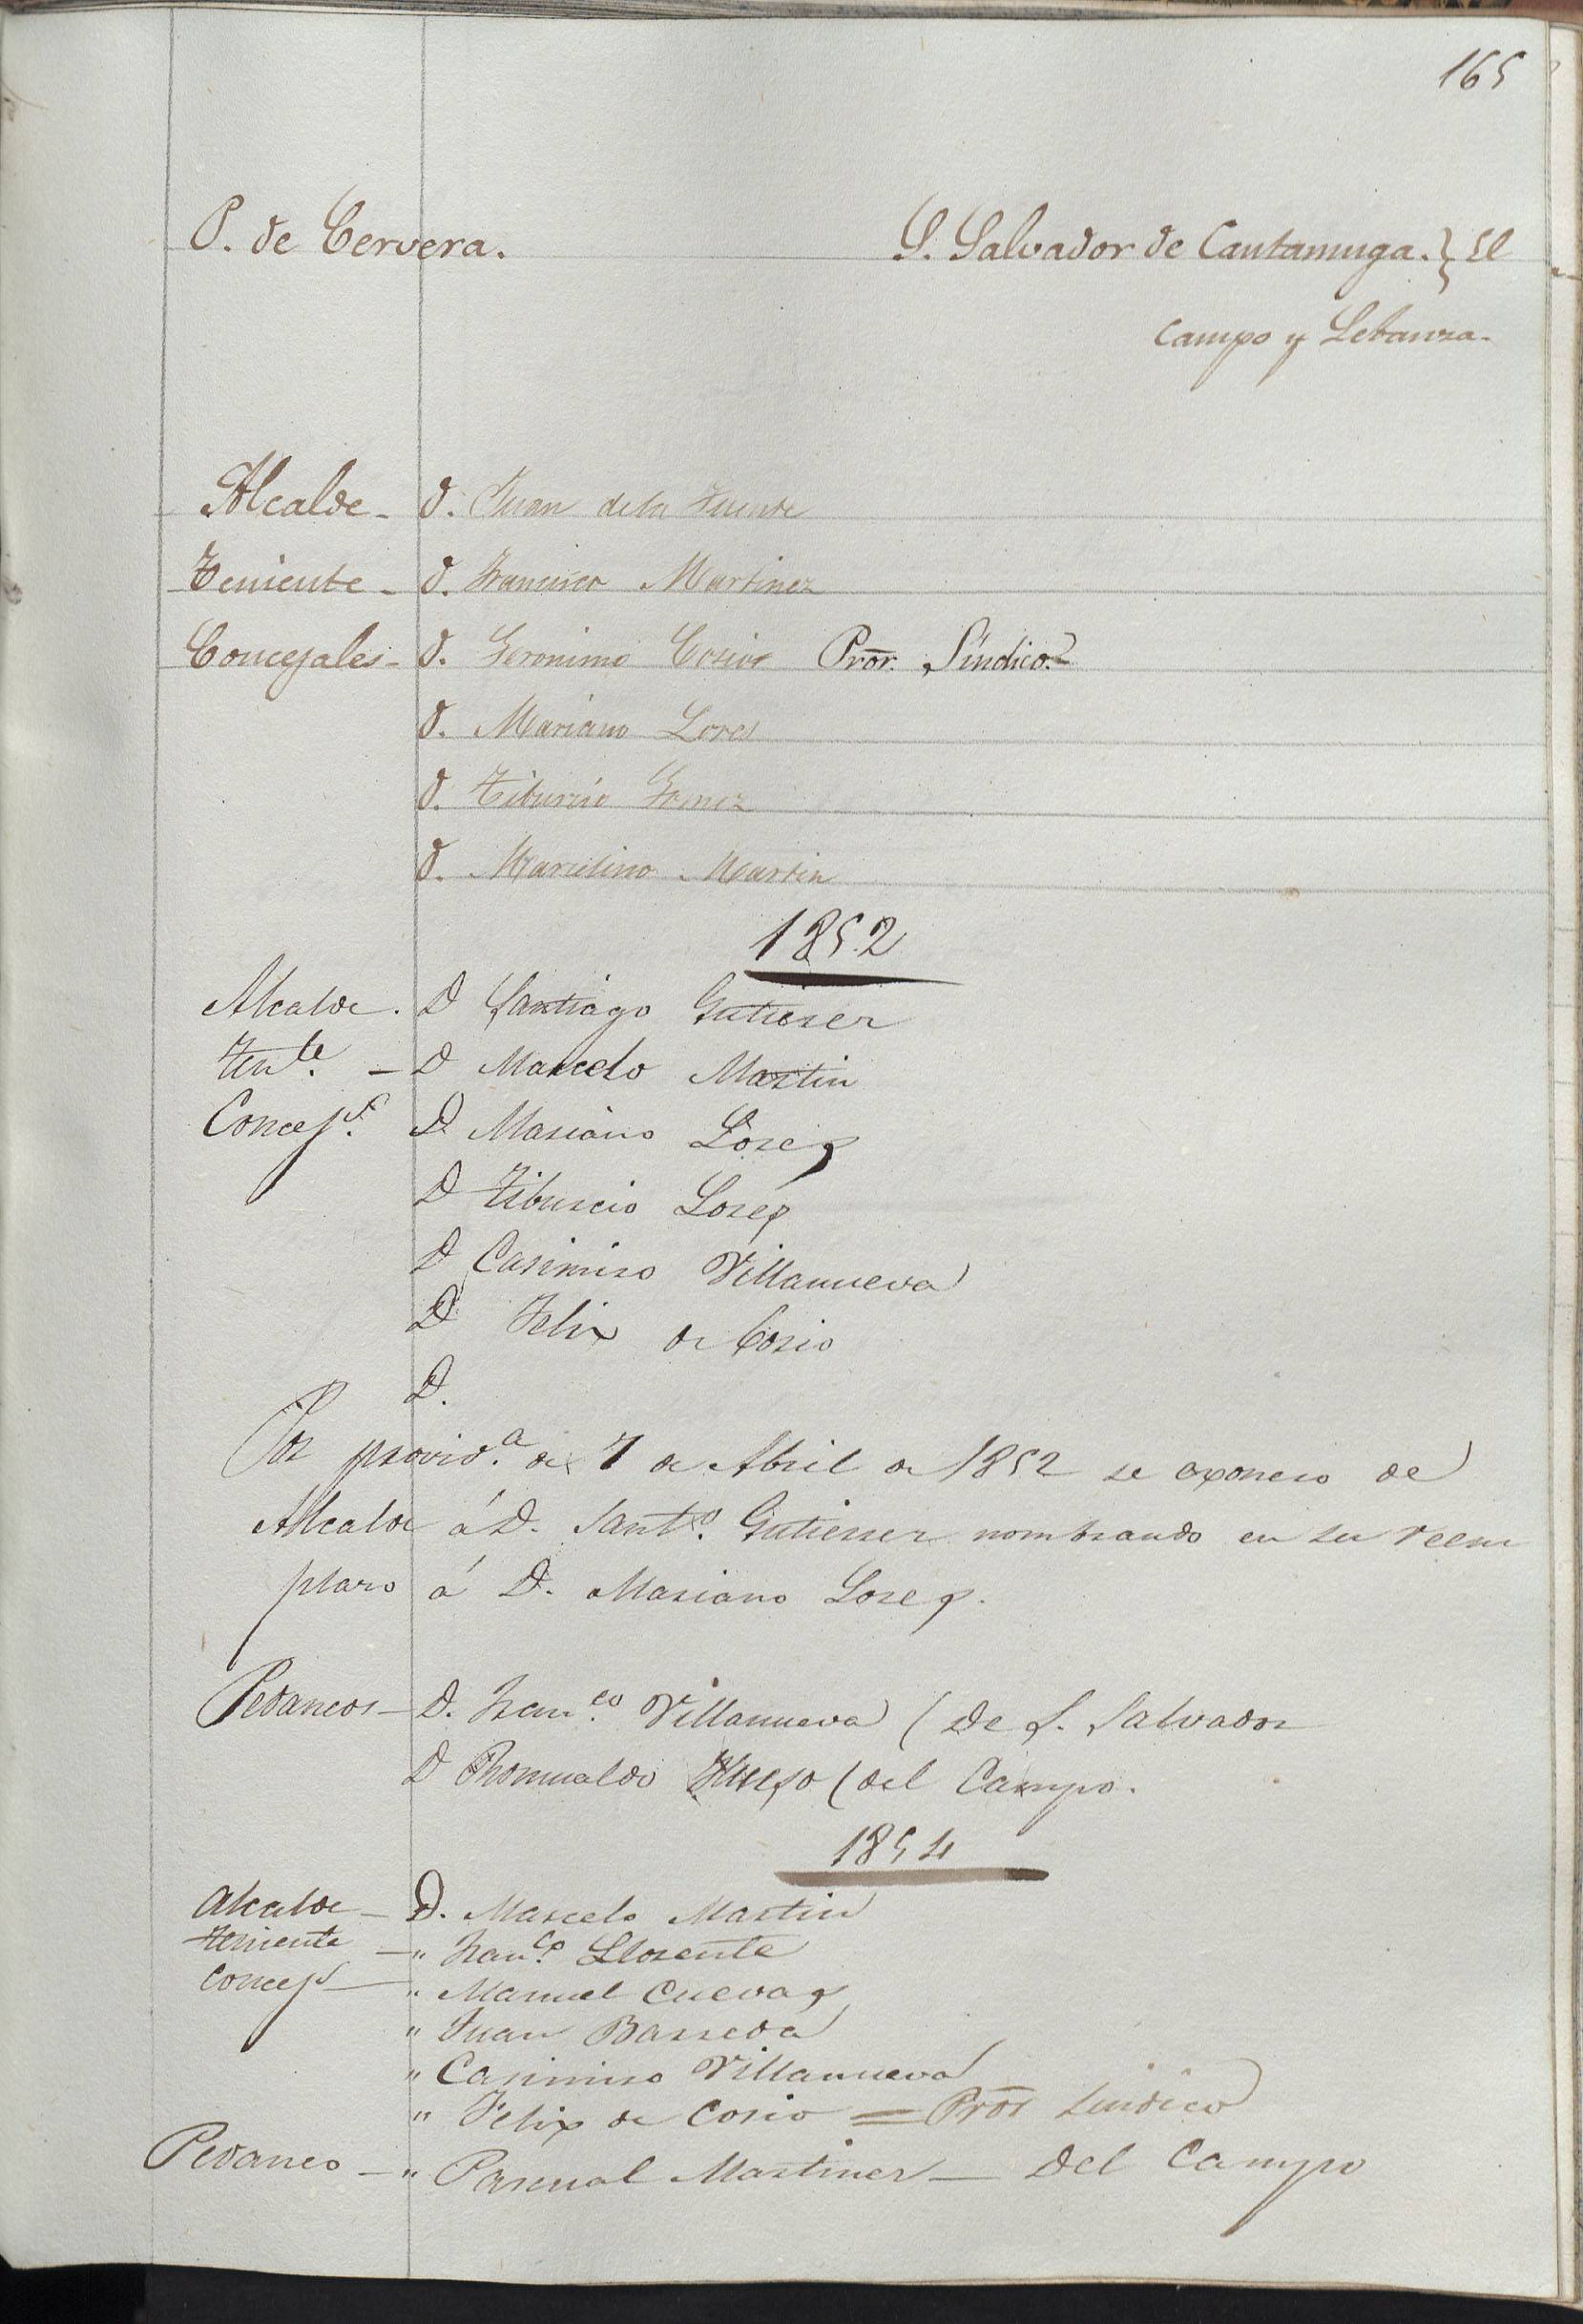 165
P. de Cervera. S. Salvador de Cantamuga. } El
Campo y Lebanza.
Alcalde - D. Juan de la Fuente
Teniente - D. Francisco Martinez
Concejales - D. Geronimo Cosio Pror. Síndico.
D. Mariano Lores
D. Tiburcio Gomez
D. Marcelino Martin
1852
Alcalde. D Santiago Gutierrez
Tente. - D Marcelo Martin
Concejs. D Mariano Lores
D Tiburcio Lores
D Casimiro Villanueva
D Felix de Cosio
D.
Por provida. de 7 de Abril de 1852 se exonero de
Alcalde á D. Santo. Gutierrez nombrando en su reem
plazo á D. Mariano Lores.
Pedaneos - D. Franco. Villanueva (De S. Salvador
D Romualdo (del Campo.
1854
Alcalde - D. Marcelo Martin
Teniente - " Franco. Llorente
Concejs - " Manuel Cuevas
" Juan Barreda
" Casimiro Villanueva
" Felix de Cosio = Pror Sindico
Pedaneo - " Pascual Martinez - Del Campo